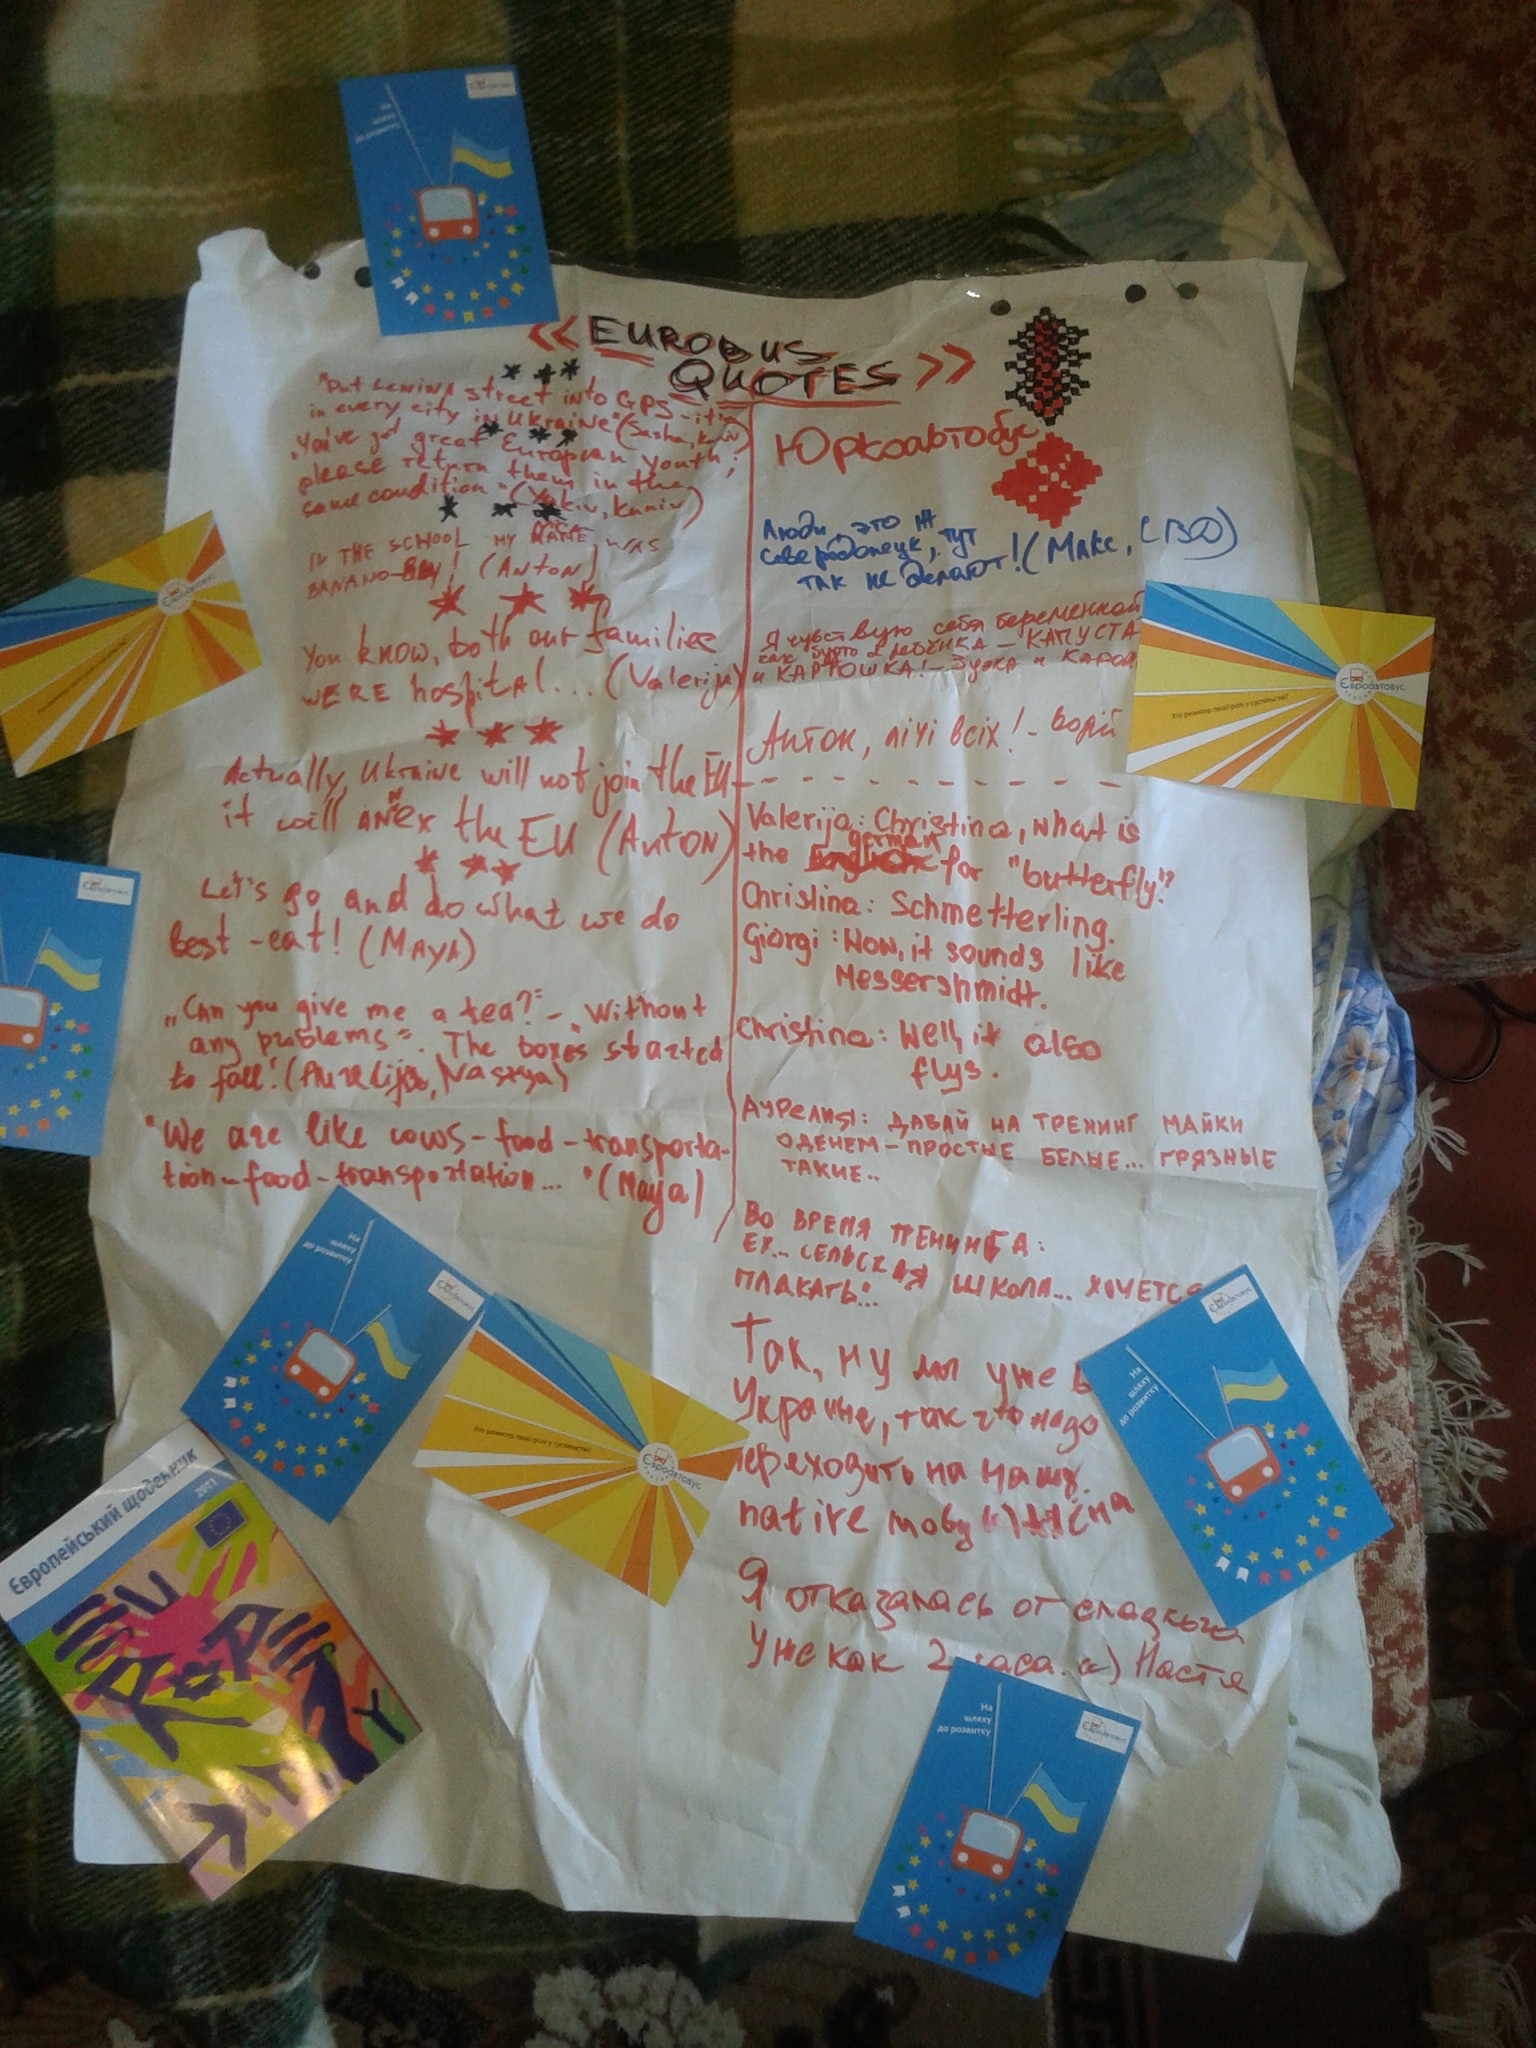 « EUROBUS
QUOTES »
"Put Lenina street into GPS - it's
in every city in Ukraine" (Sasha, Kyiv)
„You've got great European youth;
please return them in the
same condition" (Yakiv, Kaniv)
IN THE SCHOOL MY NAME WAS
BANANO-BOY! (ANTON)
You know, both our families
WERE hospital... (Valerija)
Actually, Ukraine will not join the EU -
it will ANNEX the EU (ANTON)
Let's go and do what we do
best - eat! (MAYA)
„Can you give me a tea?" - „Without
any problems". The boxes started
to fall! (Aurelija, Nastya)
"We are like cows - food - transporta-
tion - food - transportation..." (Maya)
Юркоавтобус
Люди, это ж
Северодонецк, тут
так не делают! (Макс, СВД)
Я чувствую себя беременной
как будто 2 РЕБЁНКА - КАПУСТА
и КАРТОШКА! -
Антон, лічі всіх! - Юрій
Valerija: Christina, what is
german
the for "butterfly"?
Christina: Schmetterling.
Giorgi: Wow, it sounds like
Messershmidt.
Christina: Well, it also
flys.
АУРЕЛИЯ: ДАВАЙ НА ТРЕНИНГ МАЙКИ
ОДЕНЕМ - ПРОСТЫЕ БЕЛЫЕ... ГРЯЗНЫЕ
ТАКИЕ..
ВО ВРЕМЯ ТРЕНИНГА:
ЕХ... СЕЛЬСКАЯ ШКОЛА... ХОЧЕТСЯ
ПЛАКАТЬ...
Так, ну мы уже в
Украине, так что надо
переходить на нашу
native мову
Я отказалась от сладкого
уже как 2 часа. (с) Настя
На
шляху
до розвитку
Євроавтобус
Євроавтобус
Хто режисер твоєї ролі у суспільстві?
Євроавтобус
Євроавтобус
На
шляху
до розвитку
Євроавтобус
Хто режисер твоєї ролі у суспільстві?
Євроавтобус
Європейський щоденник
2013
На
шляху
до розвитку
Євроавтобус
На
шляху
до розвитку
Євроавтобус